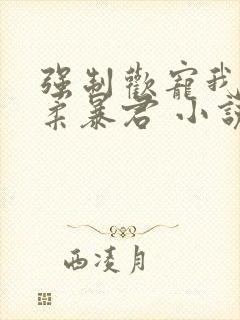 强制歡寵我
柔暴君 小說
西凌月